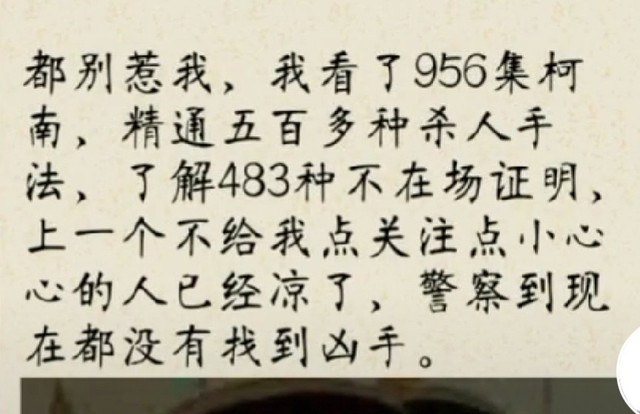 都别惹我，我看了956集柯
南，精通五百多种杀人手
法，了解483种不在场证明，
上一个不给我点关注点小心
心的人已经凉了，警察到现
在都没有找到凶手。